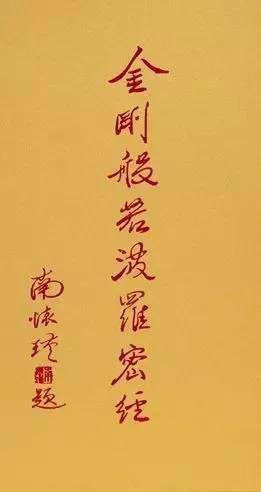 金剛般若波羅密經
南懷瑾題